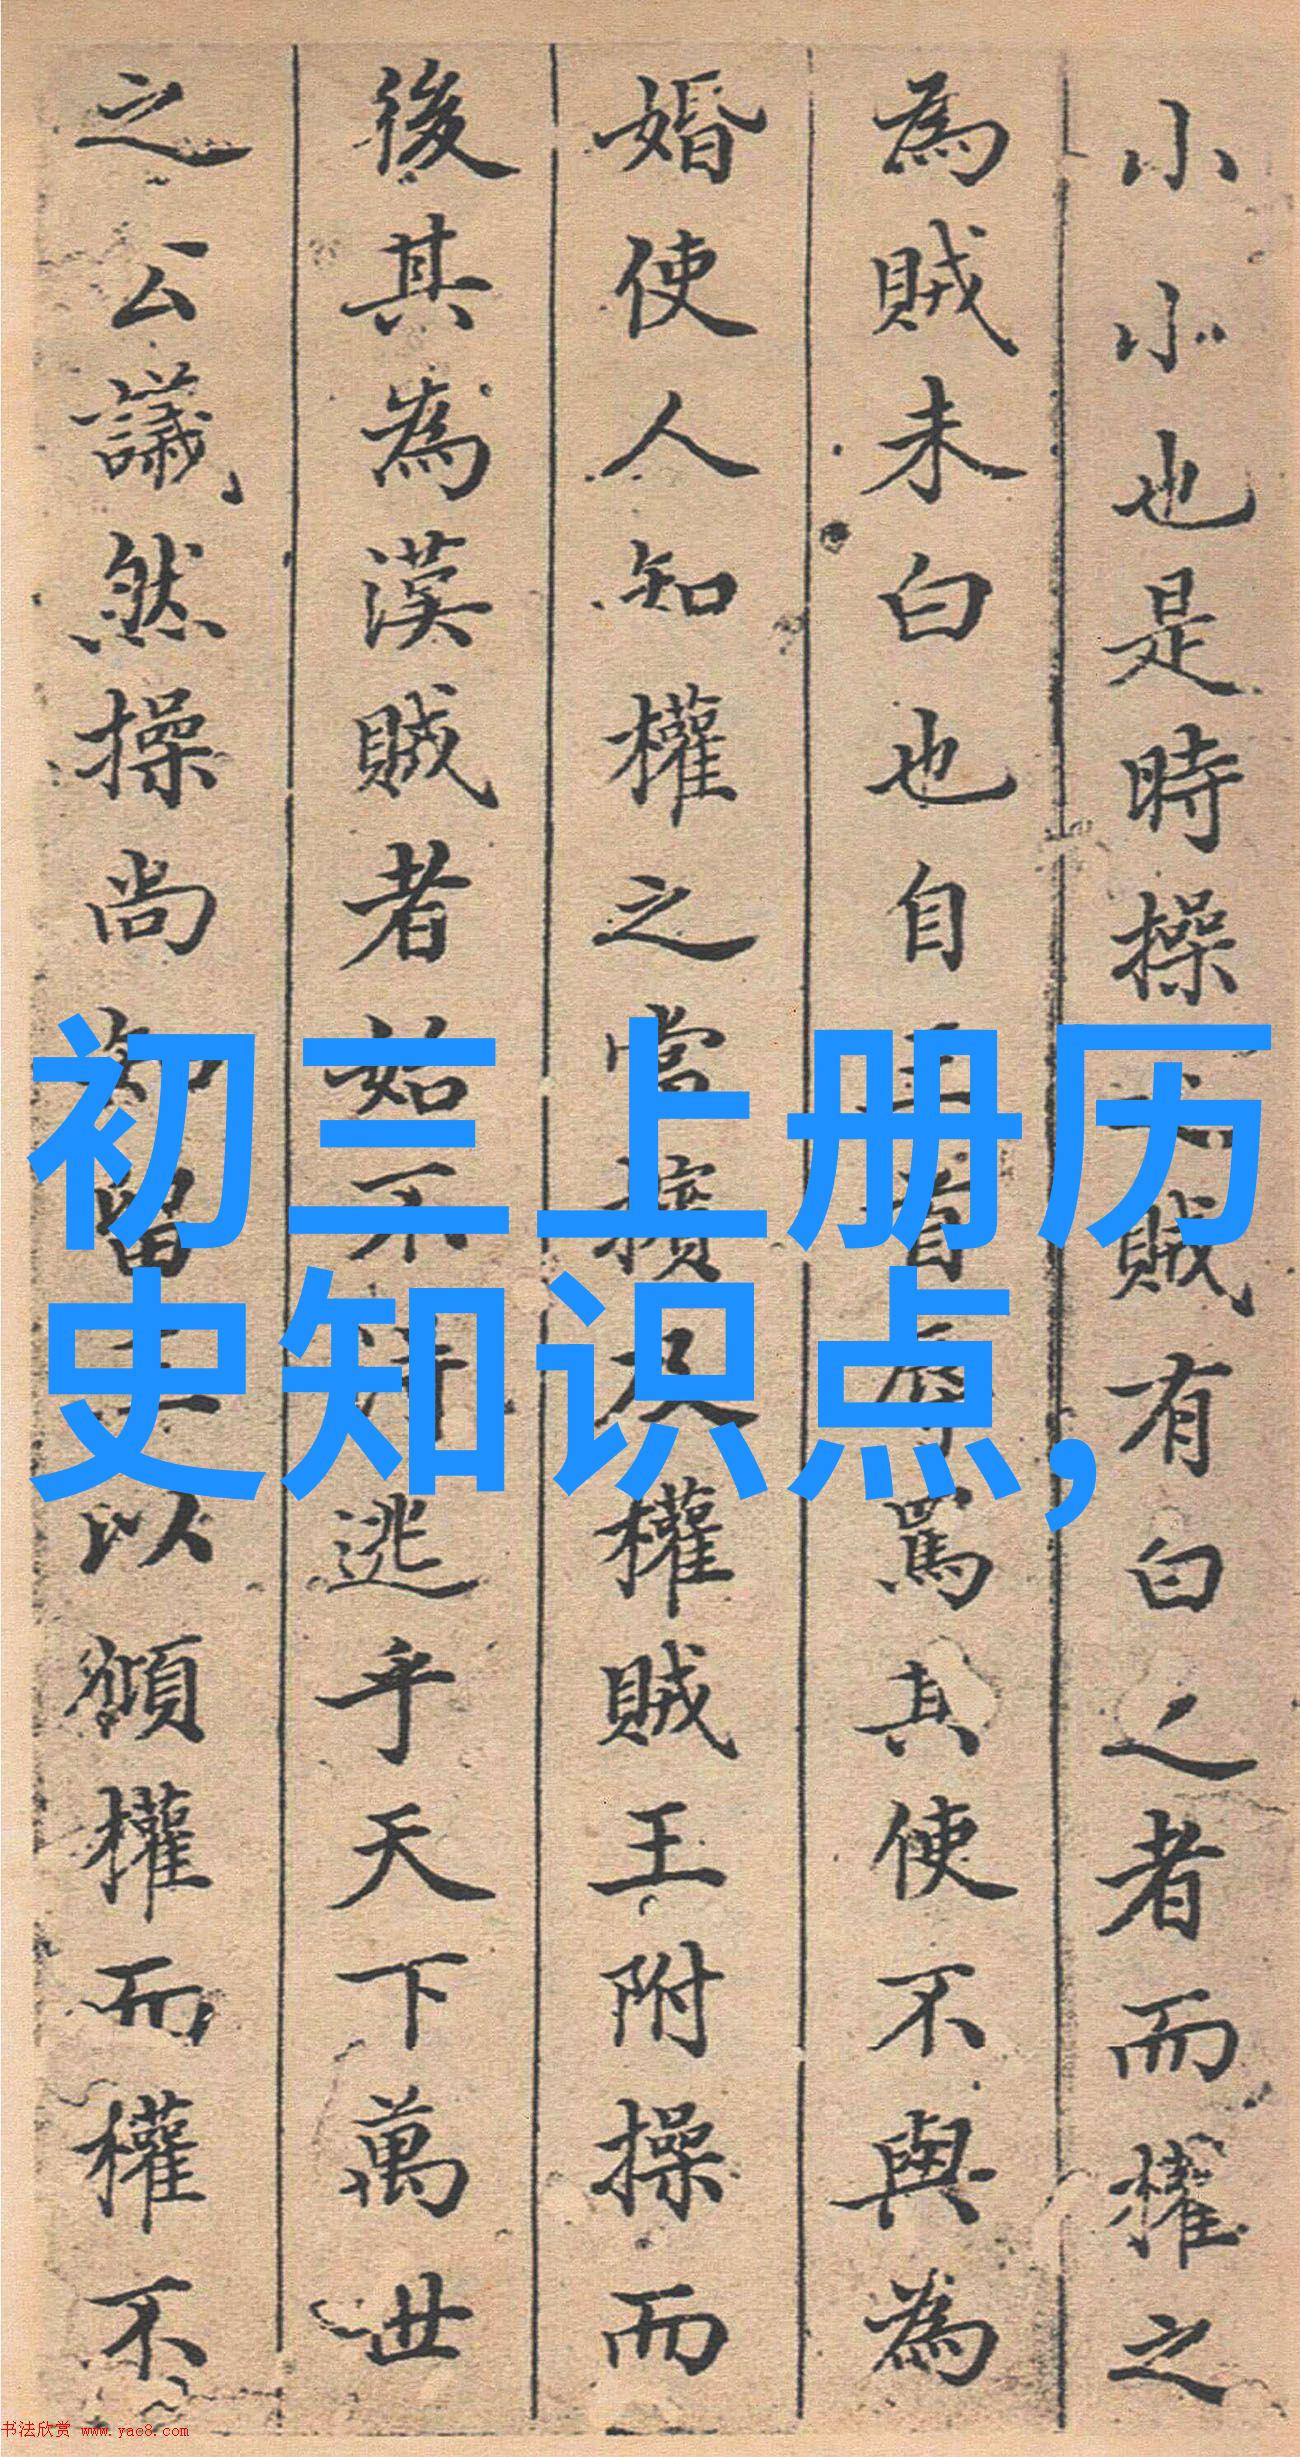 小小也是時操賊有白之者而權之
為賊未白也自罵其使不與為
婚使人知權之當權賊王附操而
後其為漢賊者始不逃乎天下萬世
之公議然操尚知留以權而權不
初三上册历
史知识点,
书法欣赏 www.yac8.com